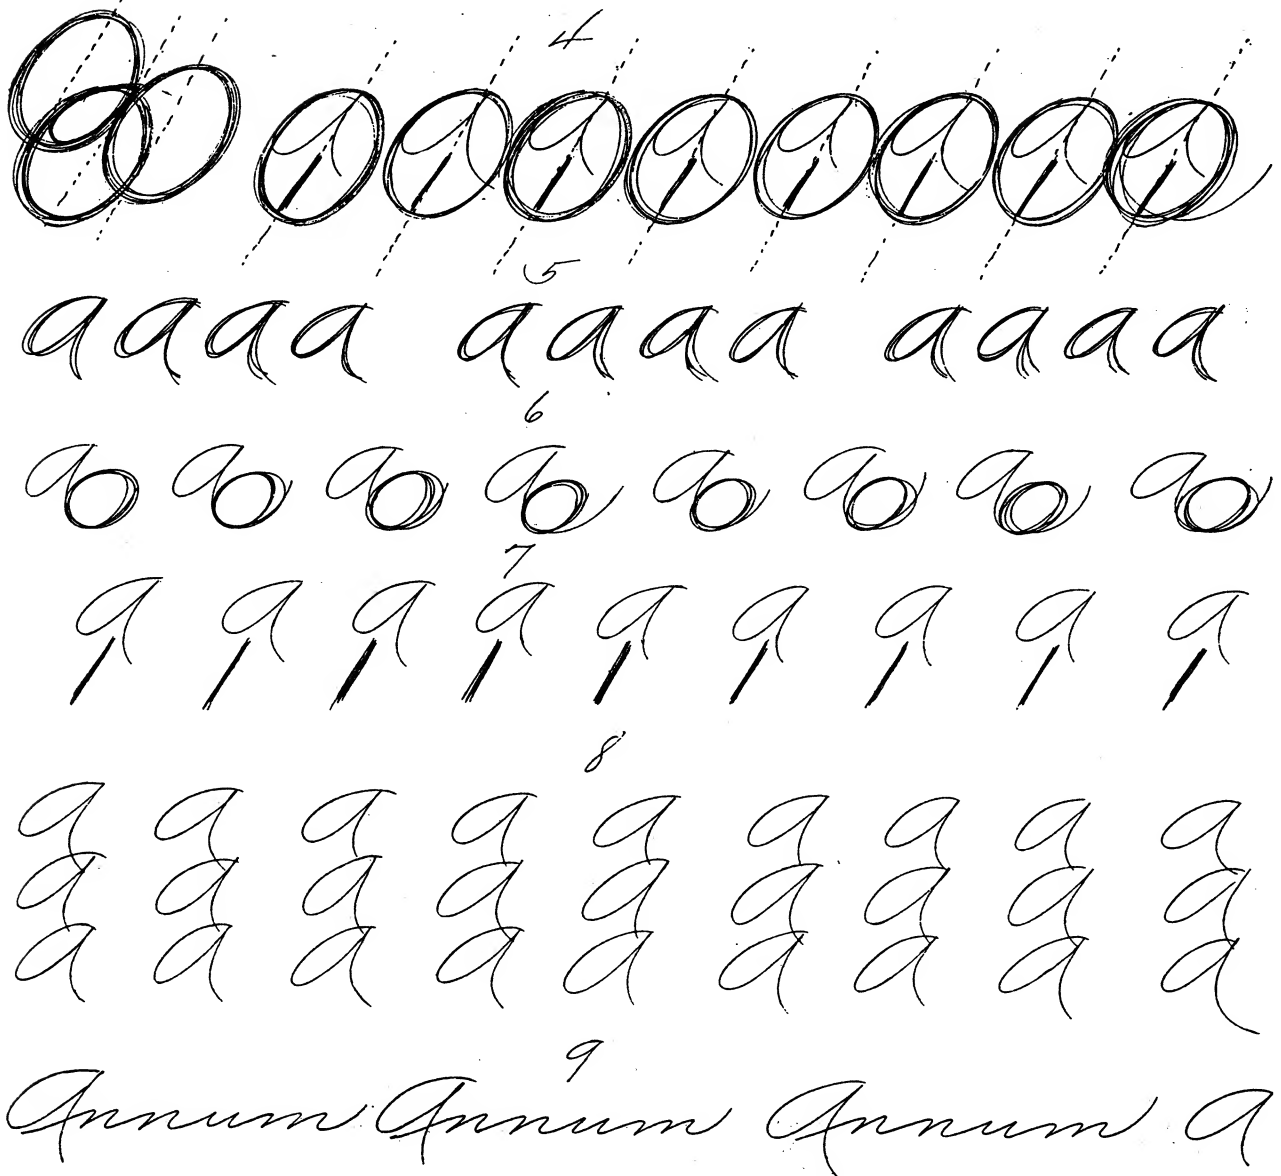 4
a a a a a a a a
5
a a a a a a a a a a a a
6
a a a a a a a a
7
a a a a a a a a a
8
a a a a a a a a a
a a a a a a a a a
a a a a a a a a a
9
Annum Annum Annum a